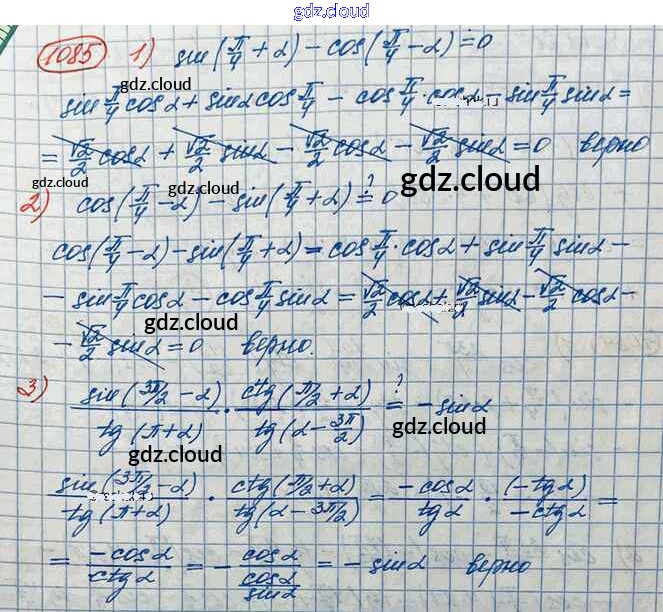 gdz.cloud
1085 1) sin(π/4 + α) − cos(π/4 − α) = 0
gdz.cloud
sin π/4 cos α + sin α cos π/4 − cos π/4 · cos α − sin π/4 sin α =
gdz.cloud
= √2/2 cos α + √2/2 sin α − √2/2 cos α − √2/2 sin α = 0 верно
gdz.cloud
gdz.cloud
2) cos(π/4 − α) − sin(π/4 + α) ?= 0
cos(π/4 − α) − sin(π/4 + α) = cos π/4 · cos α + sin π/4 sin α −
gdz.cloud
− sin π/4 cos α − cos π/4 sin α = √2/2 cos α + √2/2 sin α − √2/2 cos α −
gdz.cloud
− √2/2 sin α = 0 верно.
3) sin(3π/2 − α)/tg(π + α) · ctg(π/2 + α)/tg(α − 3π/2) ?= − sin α
gdz.cloud
gdz.cloud
sin(3π/2 − α)/tg(π + α) · ctg(π/2 + α)/tg(α − 3π/2) = −cos α/tg α · (−tg α)/−ctg α =
= −cos α/ctg α = − cos α/(cos α/sin α) = − sin α верно
gdz.cloud